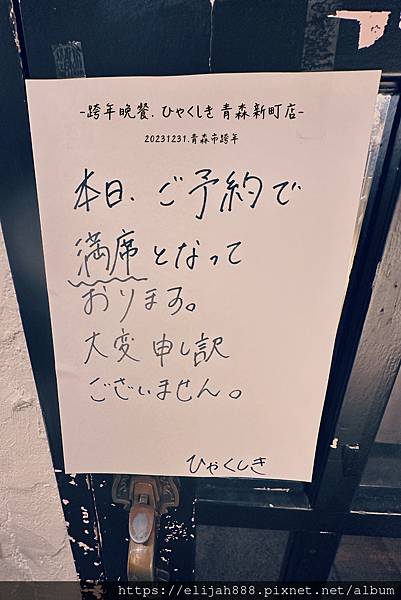 -跨年晚餐.ひゃくしき 青森新町店-
20231231.青森市跨年
本日、ご予約で
満席となって
おります。
大変申し訳
ございません。
ひゃくしき
https://elijah888.pixnet.net/album